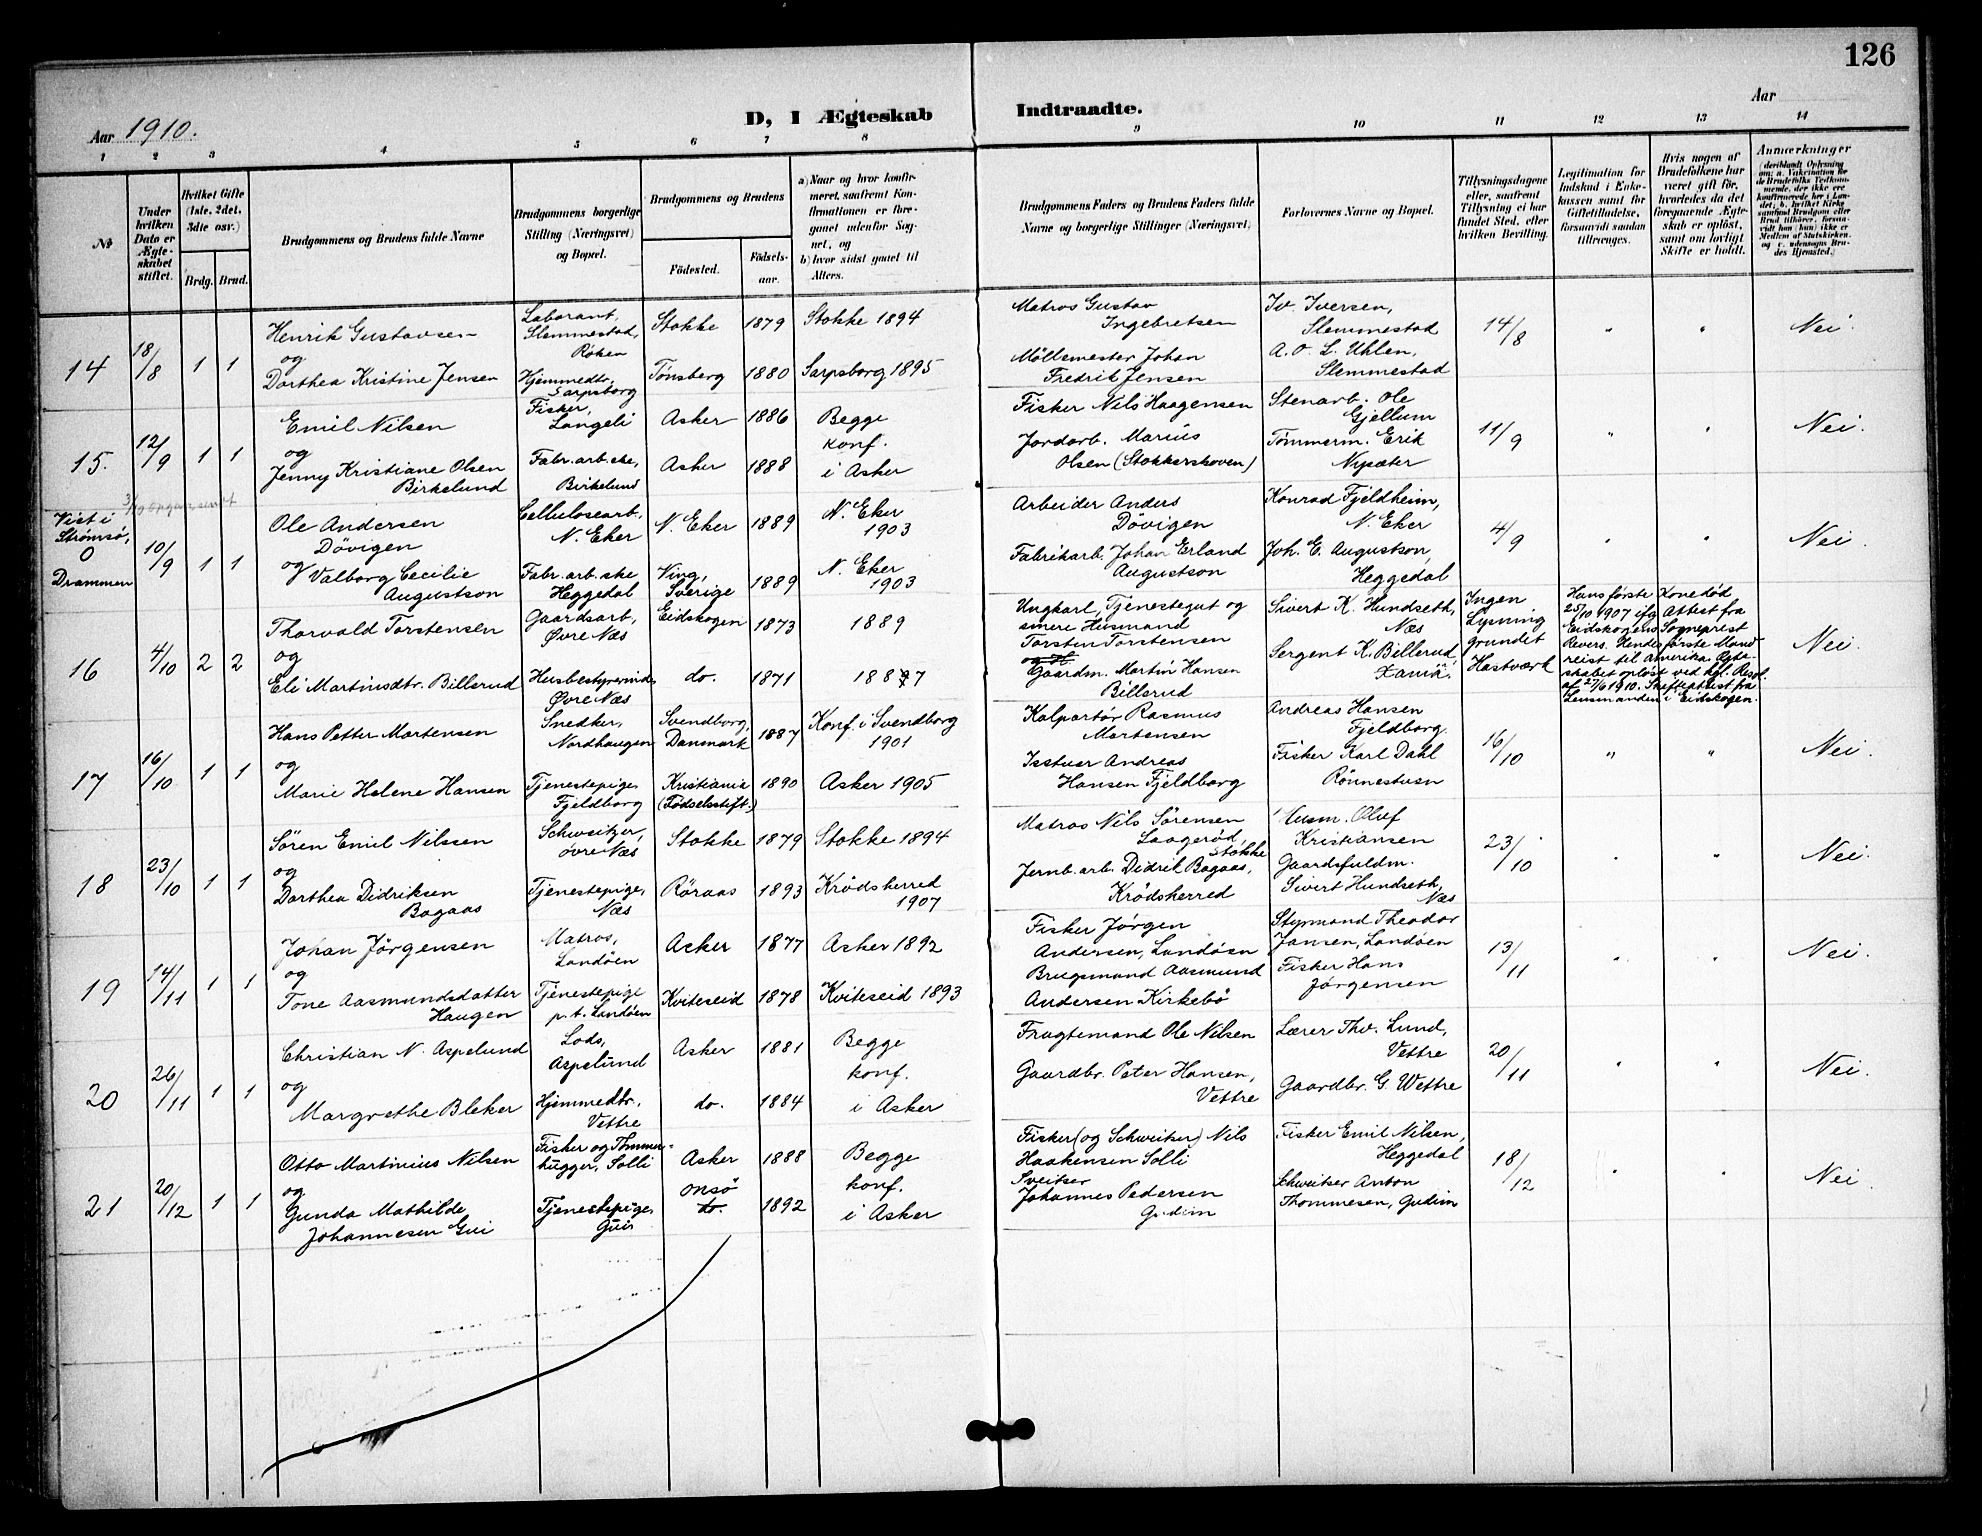 126
Aar 1910.
D, I Ægteskab Indtraadte.
Aar
1 2 3 4 5 6 7 8 9 10 11 12 13 14
№
Under hvilken Dato er Ægteskabet stiftet.
Hvilket Gifte (1ste, 2det, 3dte osv.)
Brdg. Brud.
Brudgommens og Brudens fulde Navne
Brudgommens borgerlige Stilling (Næringsvei) og Bopæl.
Brudgommens og Brudens
Födested.
Födselsaar.
a) Naar og hvor konfirmeret, saafremt Konfirmationen er foregaaet udenfor Sognet, og
b) hvor sidst gaaet til Alters.
Brudgommens Faders og Brudens Faders fulde Navne og borgerlige Stillinger (Næringsvei)
Forlovernes Navne og Bopæl.
Tillysningsdagene eller, saafremt Tillysning ei har fundet Sted, efter hvilken Bevilling.
Legitimation for Indskud i Enkekassen samt for Giftetilladelse, forsaavidt saadan tiltrænges.
Hvis nogen af Brudefolkene har været gift för, hvorledes da det foregaaende Ægteskab er oplöst, samt om lovligt Skifte er holdt.
Anmærkninger
(deriblandt Oplysning om: a. Vakcination for de Brudefolks Vedkommende, der ikke ere konfirmerede her i Landet; b. hvilket Kirkesamfund Brudgom eller Brud tilhörer, forsaavidt han (hun) ikke er Medlem af Statskirken, og c. udensogns Brudes Hjemsted.)
14
18/8
1 1
Henrik Gustavsen
og
Dorthea Kristine Jensen
Laborant,
Slemmestad,
Røken
Hjemmedtr.
Sarpsborg
Stokke 1879 Stokke 1894
Tønsberg 1880 Sarpsborg 1895
Matros Gustav
Ingebretsen
Möllemester Johan
Fredrik Jensen
Iv. Iversen,
Slemmestad
A. O. L. Uhlen,
Slemmestad
14/8
" "
Nei.
15.
12/9
1 1
Emil Nilsen
og
Jenny Kristiane Olsen
Birkelund
Fisker,
Langeli
Fabr.arb.ske,
Birkelund
Asker 1886
Asker 1888
Begge
konf.
i Asker
Fisker Nils Haagensen
Jordarb. Marius
Olsen (Stokkerskoven)
Stenarb. Ole
Gjellum
Tømmerm. Erik
Nysæter
11/9
" "
Nei.
Viet i
Strømsø,
O
Drammen
10/9
1 1
Ole Andersen
Dövigen
og
Valborg Cecilie
Augustson
Cellulosearb.,
N. Eker
Fabr.arb.ske
Heggedal
N. Eker 1889
N. Eker
1903
Ving,
Sverige 1889
N. Eker
1903
Arbeider Anders
Dövigen
Fabrikarb. Johan Erland
Augustson
Konrad Fjeldheim,
N. Eker
Joh. E. Augustson,
Heggedal
4/9
" "
Nei.
16
4/10
2 2
Thorvald Torstensen
og
Eli Martinsdtr. Billerud
Gaardsarb,
Øvre Næs
Husbestyrerinde
Øvre Næs
Eidskogen 1873 1889
do. 1871 1887
Ungkarl, Tjenestegut og
smere Husmand
Torsten Torstensen
Gaardm. Martin Hansen
Billerud
Sivert K. Hundseth,
Næs
Sergent K. Billerud,
Xania.
Ingen
Lysning
grundet
Hastværk
Hans første Kone død
25/10 1907 ifg Attest fra
Eidskogens Sogneprest
Revers. Hendes første Mand
reist til Amerika. Ægteskabet
opløst ved kgl. Resol.
af 27/6 1910. Skifteattest fra
Lensmanden i Eidskogen.
Nei.
17
16/10
1 1
Hans Petter Martensen
og
Marie Helene Hansen
Snedker,
Nordhaugen
Tjenestepige,
Fjeldborg
Svendborg,
Danmark 1887
Konf. i Svendborg
1901
Kristiania
(Fødselsstift.) 1890 Asker 1905
Kolportør Rasmus
Martensen
Isstuer Andreas
Hansen Fjeldborg
Andreas Hansen
Fjeldborg.
Fisker Karl Dahl
Rönnestuen
16/10
" "
Nei.
18
23/10
1 1
Sören Emil Nilssen
og
Dorthea Didriksen
Bagaas
Schweitzer,
øvre Næs
Tjenestepige,
Næs
Stokke 1879 Stokke 1894
Röraas 1893
Krödsherred
1907
Matros Nils Sørensen
Laagerød,
Stokke
Jernb.arb. Didrik Bagaas,
Krödsherred
Husm. Oluf
Kristiansen
Gaardsfuldm.
Sivert Hundseth,
Næs
23/10
" "
Nei.
19
14/11
1 1
Johan Jörgensen
og
Tone Aasmundsdatter
Haugen
Matros,
Landöen
Tjenestepige
p.t. Landöen
Asker 1877 Asker 1892
Kviteseid 1878 Kviteseid 1893
Fisker Jörgen
Andersen, Landöen
Brugsmand Aasmund
Andersen Kirkebö
Styrmand Theodor
Jansen, Landöen
Fisker Hans
Jörgensen
13/11
" "
Nei.
20
26/11
1 1
Christian N. Aspelund
og
Margrethe Bleker
Lods,
Aspelund
Hjemmedtr.,
Vettre
Asker 1881
do. 1884
Begge
konf.
i Asker
Fragtemand Ole Nilsen
Gaardbr. Peter Hansen,
Vettre
Lærer Thv. Lund,
Vettre
Gaardbr. G. Wettre
20/11
" "
Nei.
21
20/12
1 1
Otto Martinius Nilsen
og
Gunda Mathilde
Johannesen Gui
Fisker og Tømmerhugger, Solli
Tjenestepige,
Gui
Asker 1888
Onsö
do. 1892
Begge
konf.
i Asker
Fisker (og Schweitser) Nils
Haakensen Solli
Sveitser
Johannes Pedersen
Gudim
Fisker Emil Nilsen,
Heggedal
Schweitser Anton
Thommesen, Gudim
18/12
" "
Nei.